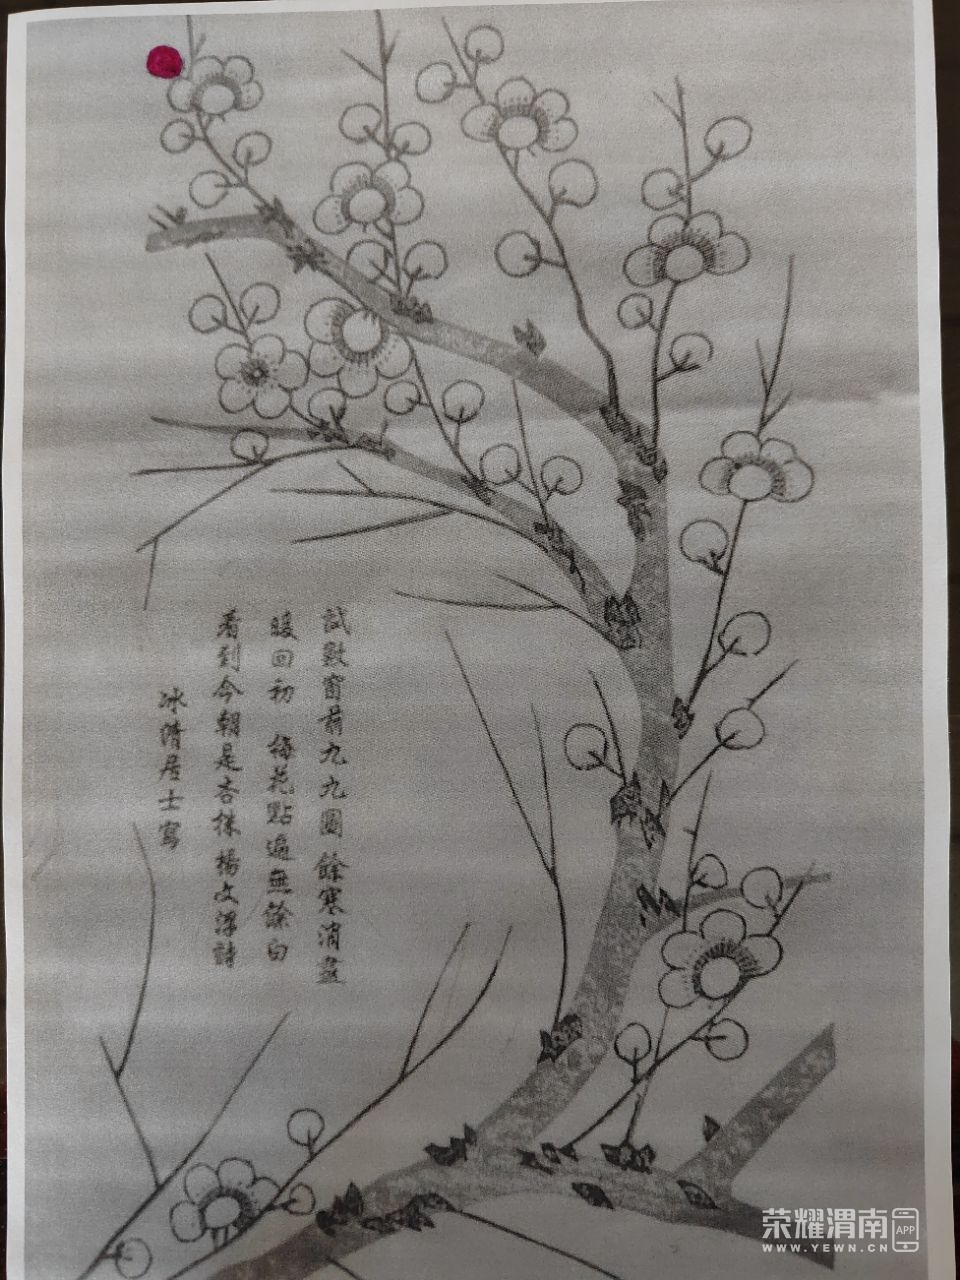 試數窗前九九圖餘寒消盡
暖回初 梅花點遍無餘白
看到今朝是杏株 楊文浮詩
冰清居士寫
荣耀渭南APP
WWW.YEWN.CN